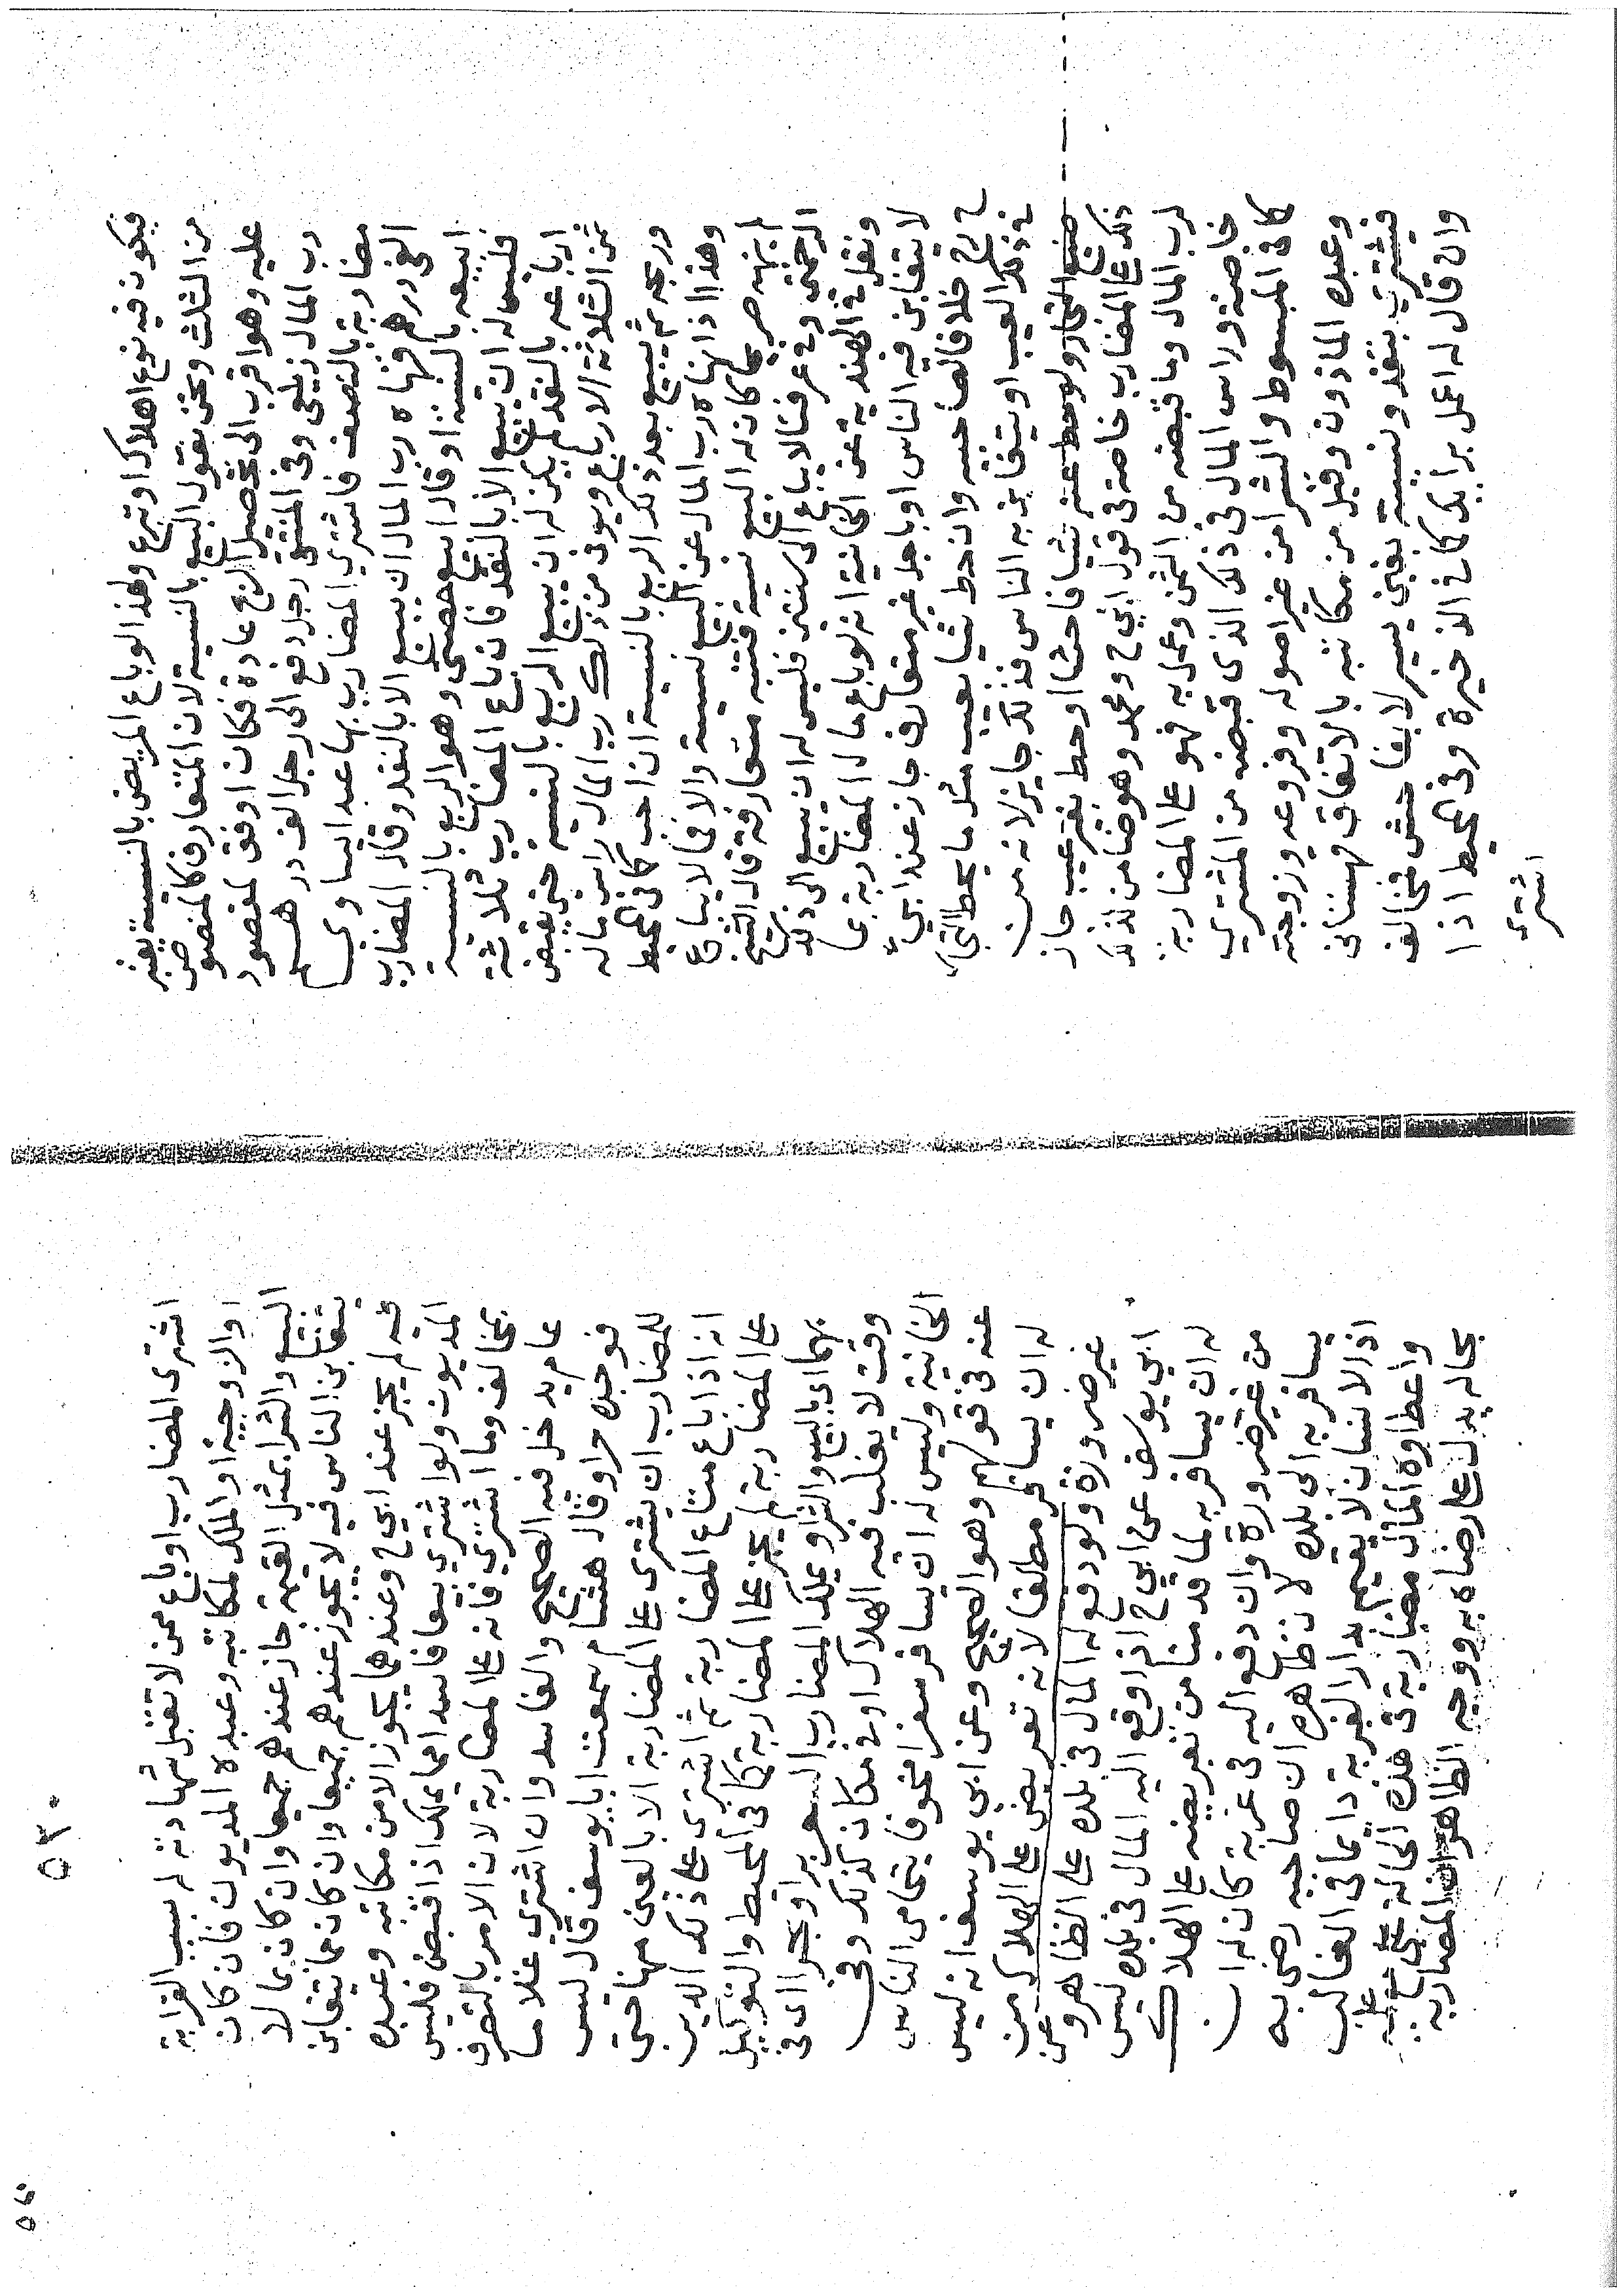 فيكون فيه نوع اهلاك او تبرع ولهذا لو باع المريض بالنسيئة يعتبر
من الثلث ونحن نقول البيع بالنسية لان المتعارف كالمنصوص
عليه وهو اقرب الى تحصيل الربح عادة فكان اوفق لمقصود
رب المال زيلعي وفي المنتقى رجل دفع الى رجل الف درهم
مضاربة بالنصف فاشترى المضارب بها عبدا يساوي
الفي درهم فنهاه رب المال ان يبيع الا بالنقد وقال المضارب
ابيعه بالنسية او قال ابيع حصتي وهو الربع بالنسية
فليس له ان يبيع الا بالنقد فان باع المضارب ثلاثة
ارباعه بالنقد لم يكن له ان يبيع الربع بالنسية حتى يقبض
ثمن الثلاثة الارباع ويوفى من ذلك رب المال راس ماله
وربحه ثم يبيع بعد ذلك الربع بالنسية ان احب كما في المحيط
وهذا اذا نهاه رب المال عن البيع نسية والا فما لا يباع
لم ينه صريحا كان له البيع نسية فتنبه متعارفة قال الشيخ
الرحمتي وفي عرفنا لا يباع الى سنتين فليس له ان يبيع الى ذلك
ونقل في الهندية عن الخانية انه لو باع مال المضاربة بما
لا يتغابن فيه الناس او باجل غير متعارف جاز عند ابي
ح خلافا لصاحبيه وان حط شيا بعيب مثل ما يحط التجار
في ذلك العيب او يتغابن به الناس فذلك جايز لانه من
صنيع التجار ولو حط عنه شيا فاحشا او حط بغير عيب جاز
ذلك على المضارب خاصة في قول ابي ح ومحمد وهو ضامن لذلك
لرب المال وما قبضه من الثمن وعمل به فهو على المضاربة
خاصة وراس المال في ذلك الذي قبضه من المشتري
كما في المبسوط والشرا من غير اصوله وفروعه وزوجته
وعبده الماذون وقيل من مكاتبه بالاتفاق قهستاني
فيشتري بنقد ونسية بغبن يسير لا بفاحش فخالف
وان قال له اعمل برايك كما في الذخيرة وفي المحيط اذا
اشترى
٥٣٠
اشترى المضارب او باع ممن لا تقبل شهادته له بسبب القرابة
او الزوجية او الملك لمكاتبه وعبده المديون فان كان
البيع والشرا بمثل القيمة جاز عندهم جميعا وان كان بما لا
يتغابن الناس فيه لا يجوز عندهم جميعا وان كان مما يتغابن
فيه لم يجز عند ابي ح وعندهما يجوز الا من مكاتبه وعبده
المديون ولو اشترى بيعا فاسدا مما يملك اذا قبض فليس
بمخالف وما اشترى فانه على المضاربة لان الامر بالتصرف
عام يدخل فيه الصحيح والفاسد وان اشترى غلاما
فوجده حرا وقال هشام سمعت ابا يوسف قال ليس
للمضارب ان يشترى على المضاربة الا بالعين منها حتى
انه اذا باع متاع المضاربة ثم اشترى على ذلك الدين
على المضاربة لم يجز على المضاربة كما في المحيط والتوكيل
بهما اي بالبيع والشرا ويملك المضارب السفر برا وبحرا اي في
وقت لا يغلب فيه الهلاك او في مكان كذلك وفي
الخانية وليس له ان يسافر سفرا مخوفا يتحامى الناس
عنه في قولهم وهو الصحيح وعن ابي يوسف انه ليس
له ان يسافر مطلقا لانه تعريض على الهلاك من
غير ضرورة ولو دفع له المال في بلده على الظاهر وعن
ابي يوسف عن ابي ح اذا وقع اليه المال في بلده ليس
له ان يسافر به لما قدمنا من تعريضه على الهلاك
من غير ضرورة وان دفع اليه في غربة كان له ان
يسافر به الى بلده لان ظاهره ان صاحبه رضي به
اذ الانسان لا يقيم بدار الغربة دايما في الغالب
واعطاؤه المال مضاربة في هذه الحالة مع علمه
بحاله يدل على رضاه به ووجه الظاهر ان المضاربة